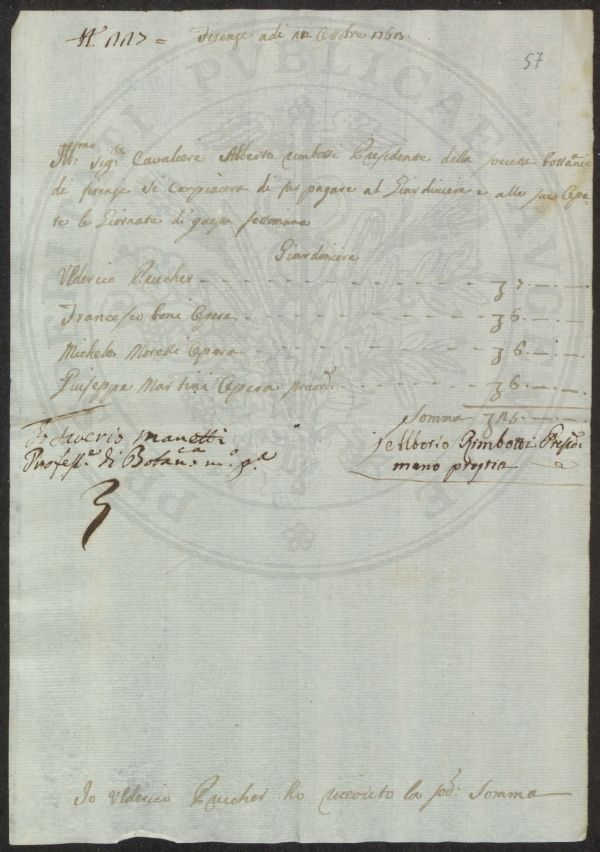 N.° 1117 = Firenze adi 12 Ottobre 1765
57
Ill.mo Sig.re Cavaliere Alberto Rimbotti Presidente della società bottanica
di firenze Si Compiacera di far pagare al Giardiniere e alle sue Ope
re le Giornate di questa settimana
Giardiniere
Ulderico Prucher 7
Francesco boni Opera 6
Michele Moretti Opera 6
Giuseppe Martini Opera 6
Somma
Saverio Manetti
Profess.e di Botan.ca m.o p.a
Alberto Rimbotti Presid.
mano propria
Io Ulderico Prucher ho riceuto la sod: Somma